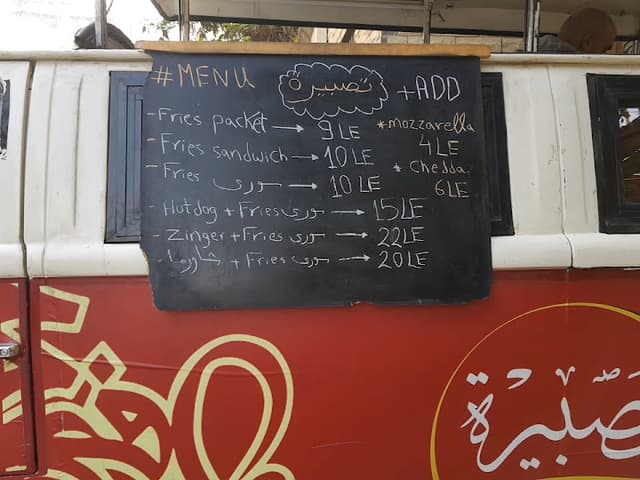 #MENU
تصبيرة
+ADD
- Fries packet → 9 LE
- Fries sandwich → 10 LE
- Fries سورى → 10 LE
- Hotdog + Fries سورى → 15 LE
- Zinger + Fries سورى → 22 LE
- شاورما + Fries سورى → 20 LE
* mozzarella
4 LE
* Chedda.
6 LE
تصبيرة